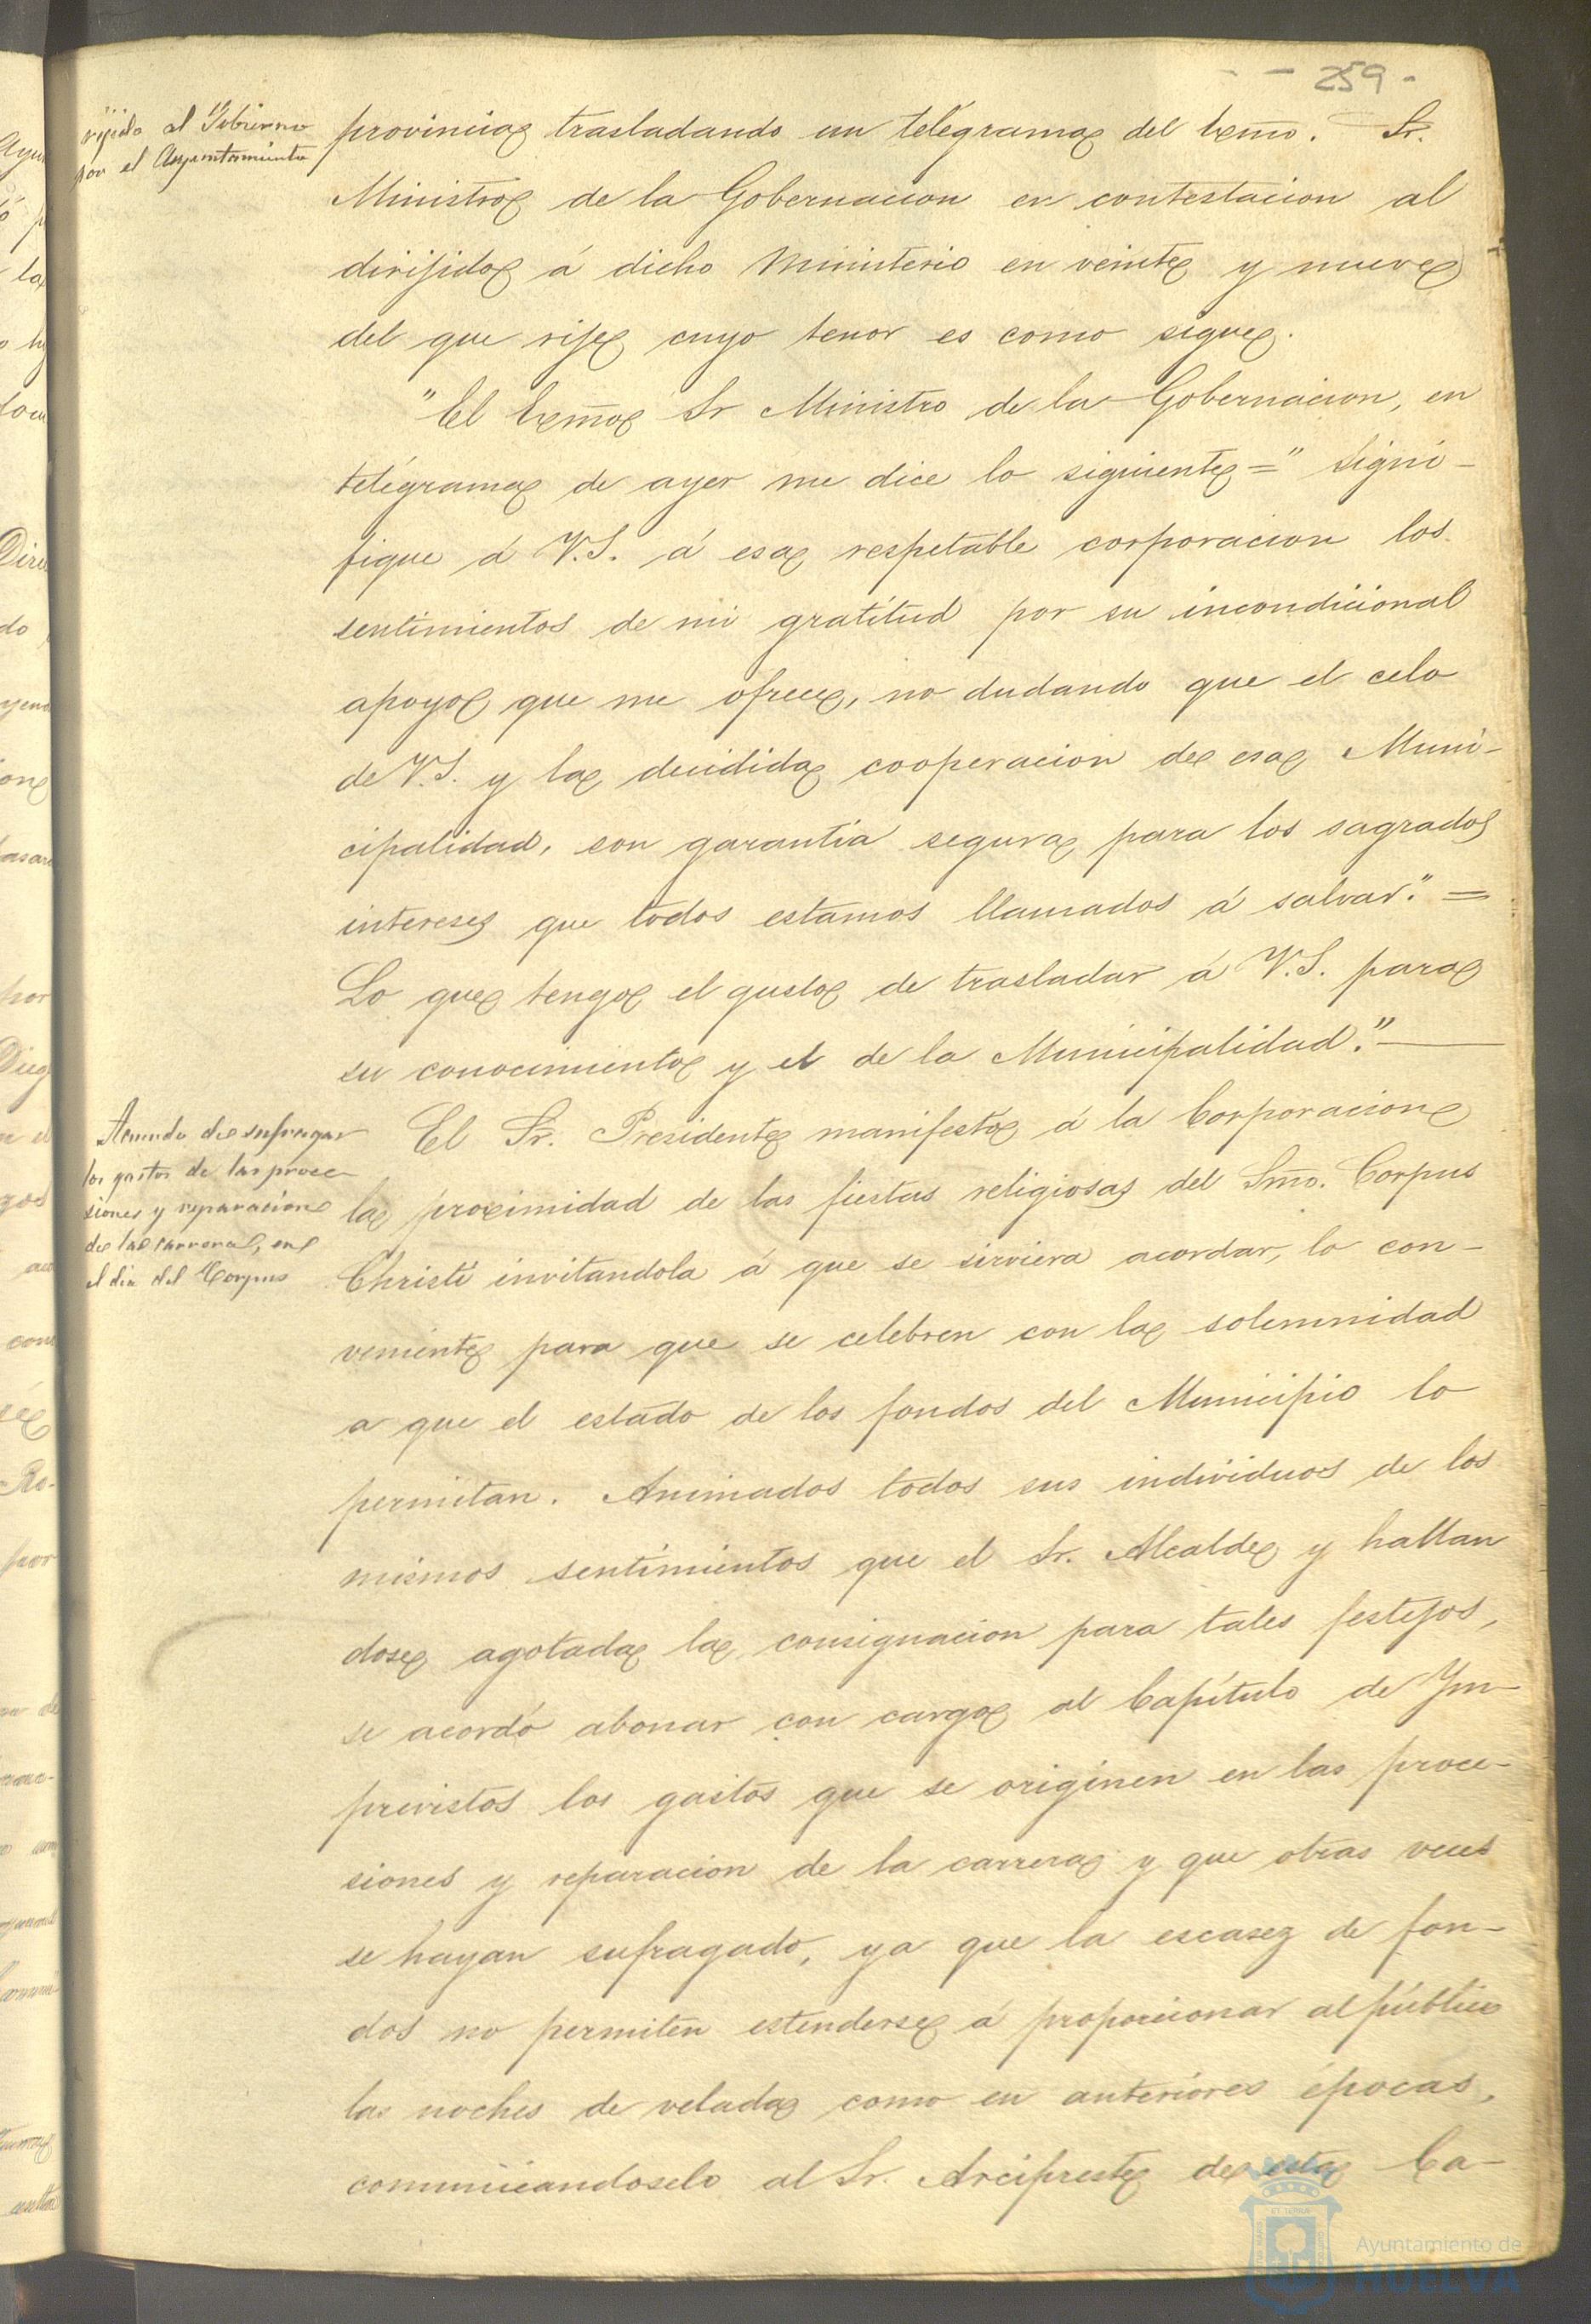 - 259 -
rijido al Gobierno
por el Ayuntamiento
provincia trasladando un telégrama del Excmo. Sr.
Ministro de la Gobernacion en contestacion al
dirijido á dicho Ministerio en veinte y nueve
del que rije cuyo tenor es como sigue.
"El Excmo Sr Ministro de la Gobernacion, en
telégrama de ayer me dice lo siguiente=" Signi-
fique á V.S. á esa respetable corporacion los
sentimientos de mi gratitud por su incondicional
apoyo que me ofrece, no dudando que el celo
de V.S. y la decidida cooperacion de esa Muni-
cipalidad, son garantía segura para los sagrados
intereses que todos estamos llamados á salvar." =
Lo que tengo el gusto de trasladar á V.S. para
su conocimiento y el de la Municipalidad."
Acuerdo de sufragar
los gastos de las proce-
siones y reparacion
de las carreras, en
el dia del Corpus
El Sr. Presidente manifestó á la Corporacion
la proximidad de las fiestas religiosas del Smo. Corpus
Christi invitandola á que se sirviera acordar, lo con-
veniente para que se celebren con la solemnidad
a que el estado de los fondos del Municipio lo
permitan. Animados todos sus individuos de los
mismos sentimientos que el Sr. Alcalde y hallan
dose agotada la consignacion para tales festejos,
se acordó abonar con cargo al Capítulo de Ym-
previstos los gastos que se originen en las proce-
siones y reparacion de la carrera y que otras veces
se hayan sufragado, ya que la escasez de fon-
dos no permiten estenderse á proporcionar al público
las noches de velada como en anteriores épocas,
comunicandoselo al Sr. Arcipreste de esta Ca-
Ayuntamiento de
HUELVA